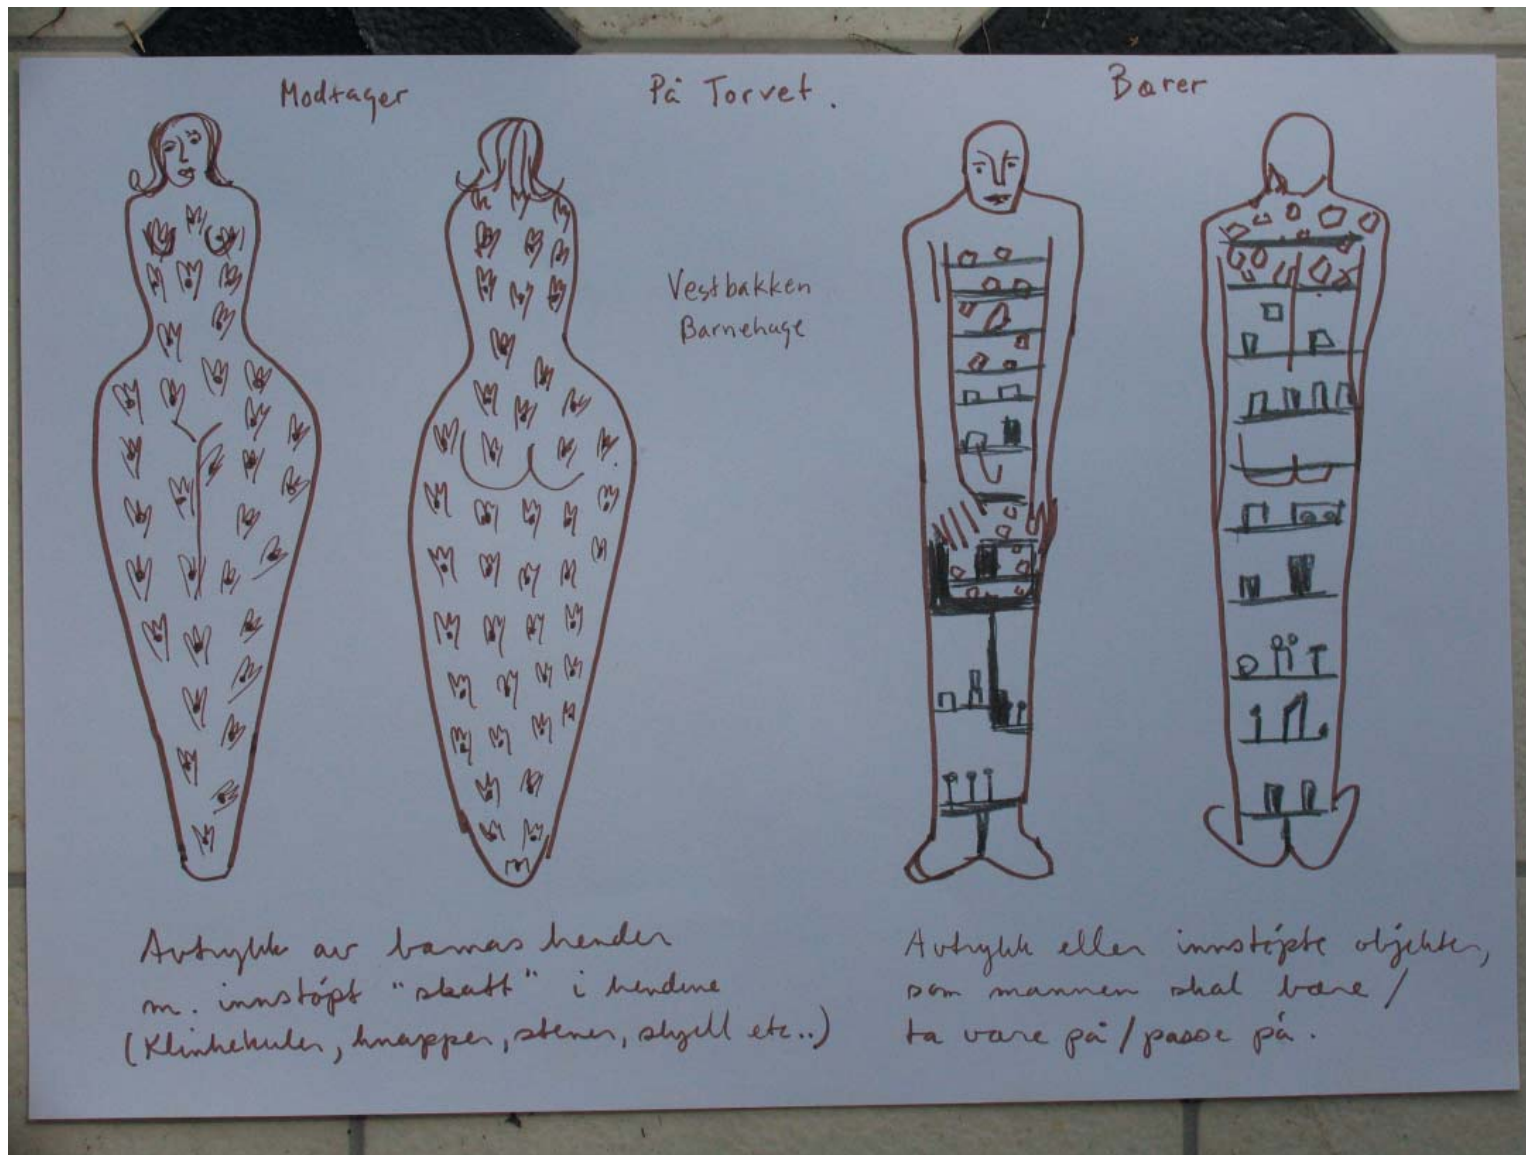 Modtager
På Torvet.
Bærer
Vestbakken
Barnehage
Avtrykk av barnas hender
m. innstöpt "skatt" i hendene
(Klinkekuler, knapper, stener, skjell etc..)
Avtrykk eller innstöpte objekter,
som mannen skal bære /
ta vare på / passe på.